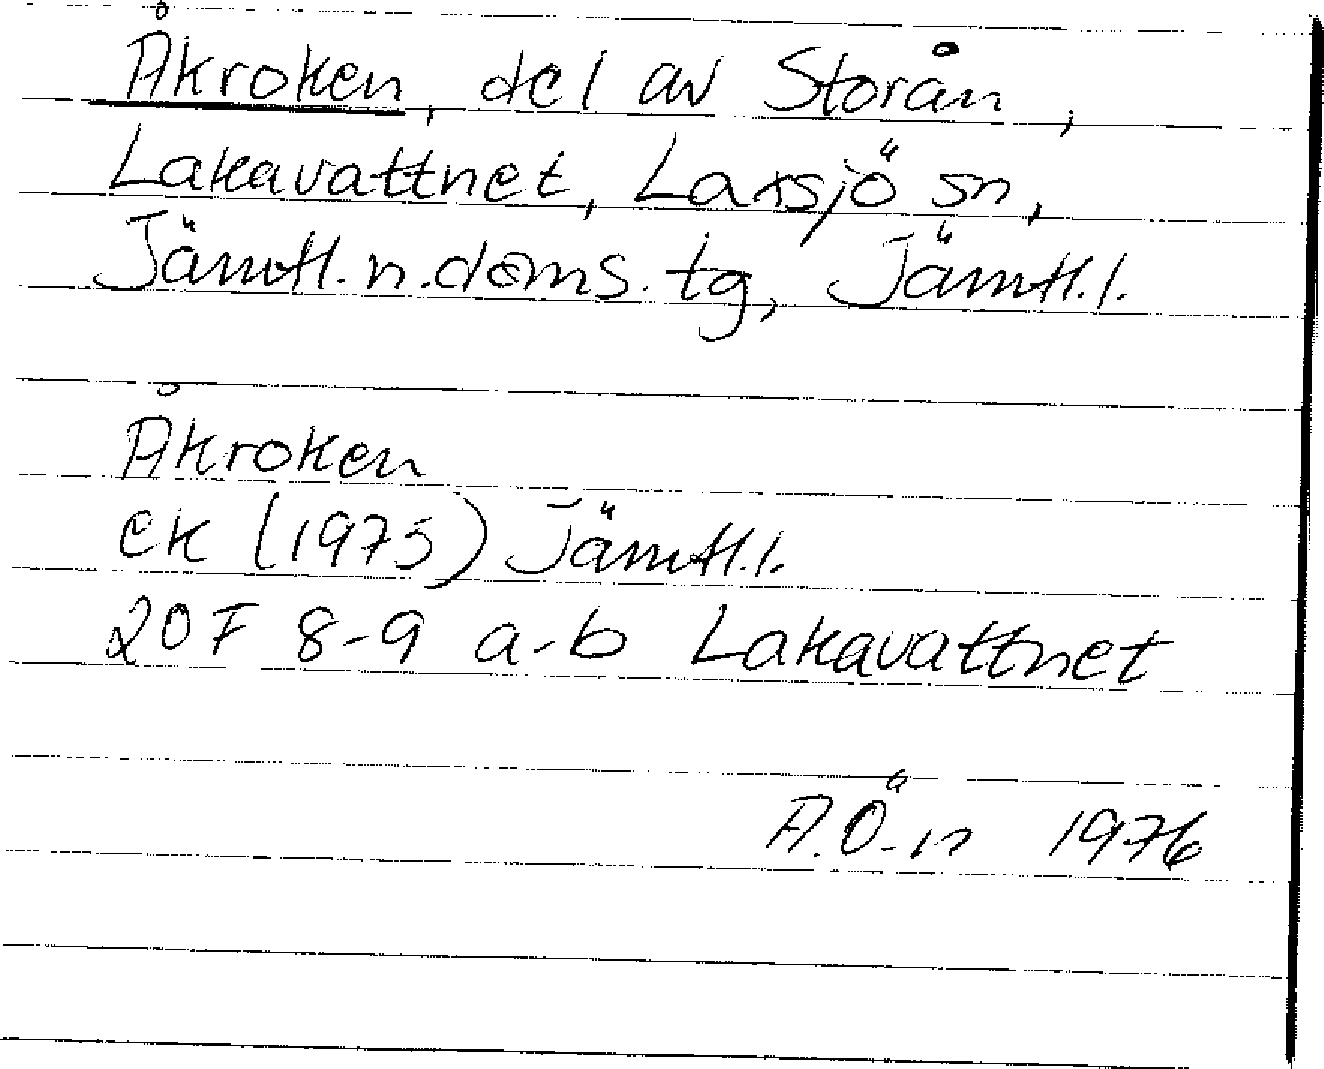 Åkroken, del av Storån,
Lakavattnet, Laxsjö sn,
Jämtl. n. doms. tg, Jämtl. l.
Åkroken
ek (1975) Jämtl. l.
20F 8-9 a-b Lakavattnet
A.Ö-n 1976